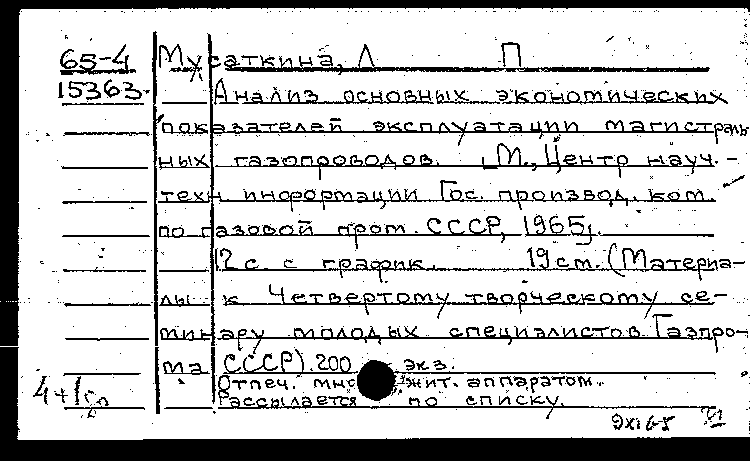 65-4 Мусаткина, Л П
15363. Анализ основных экономических
показателей эксплуатации магистраль
ных газопроводов. [М., Центр науч.-
техн информации Гос. производ. ком.
по газовой пром. СССР, 1965].
12 с. с график. 19 см. (Материа-
лы к Четвертому творческому се-
минару молодых специалистов Газпро-
ма СССР). 200 экз.
Отпеч. множит. аппаратом.
Рассылается по списку.